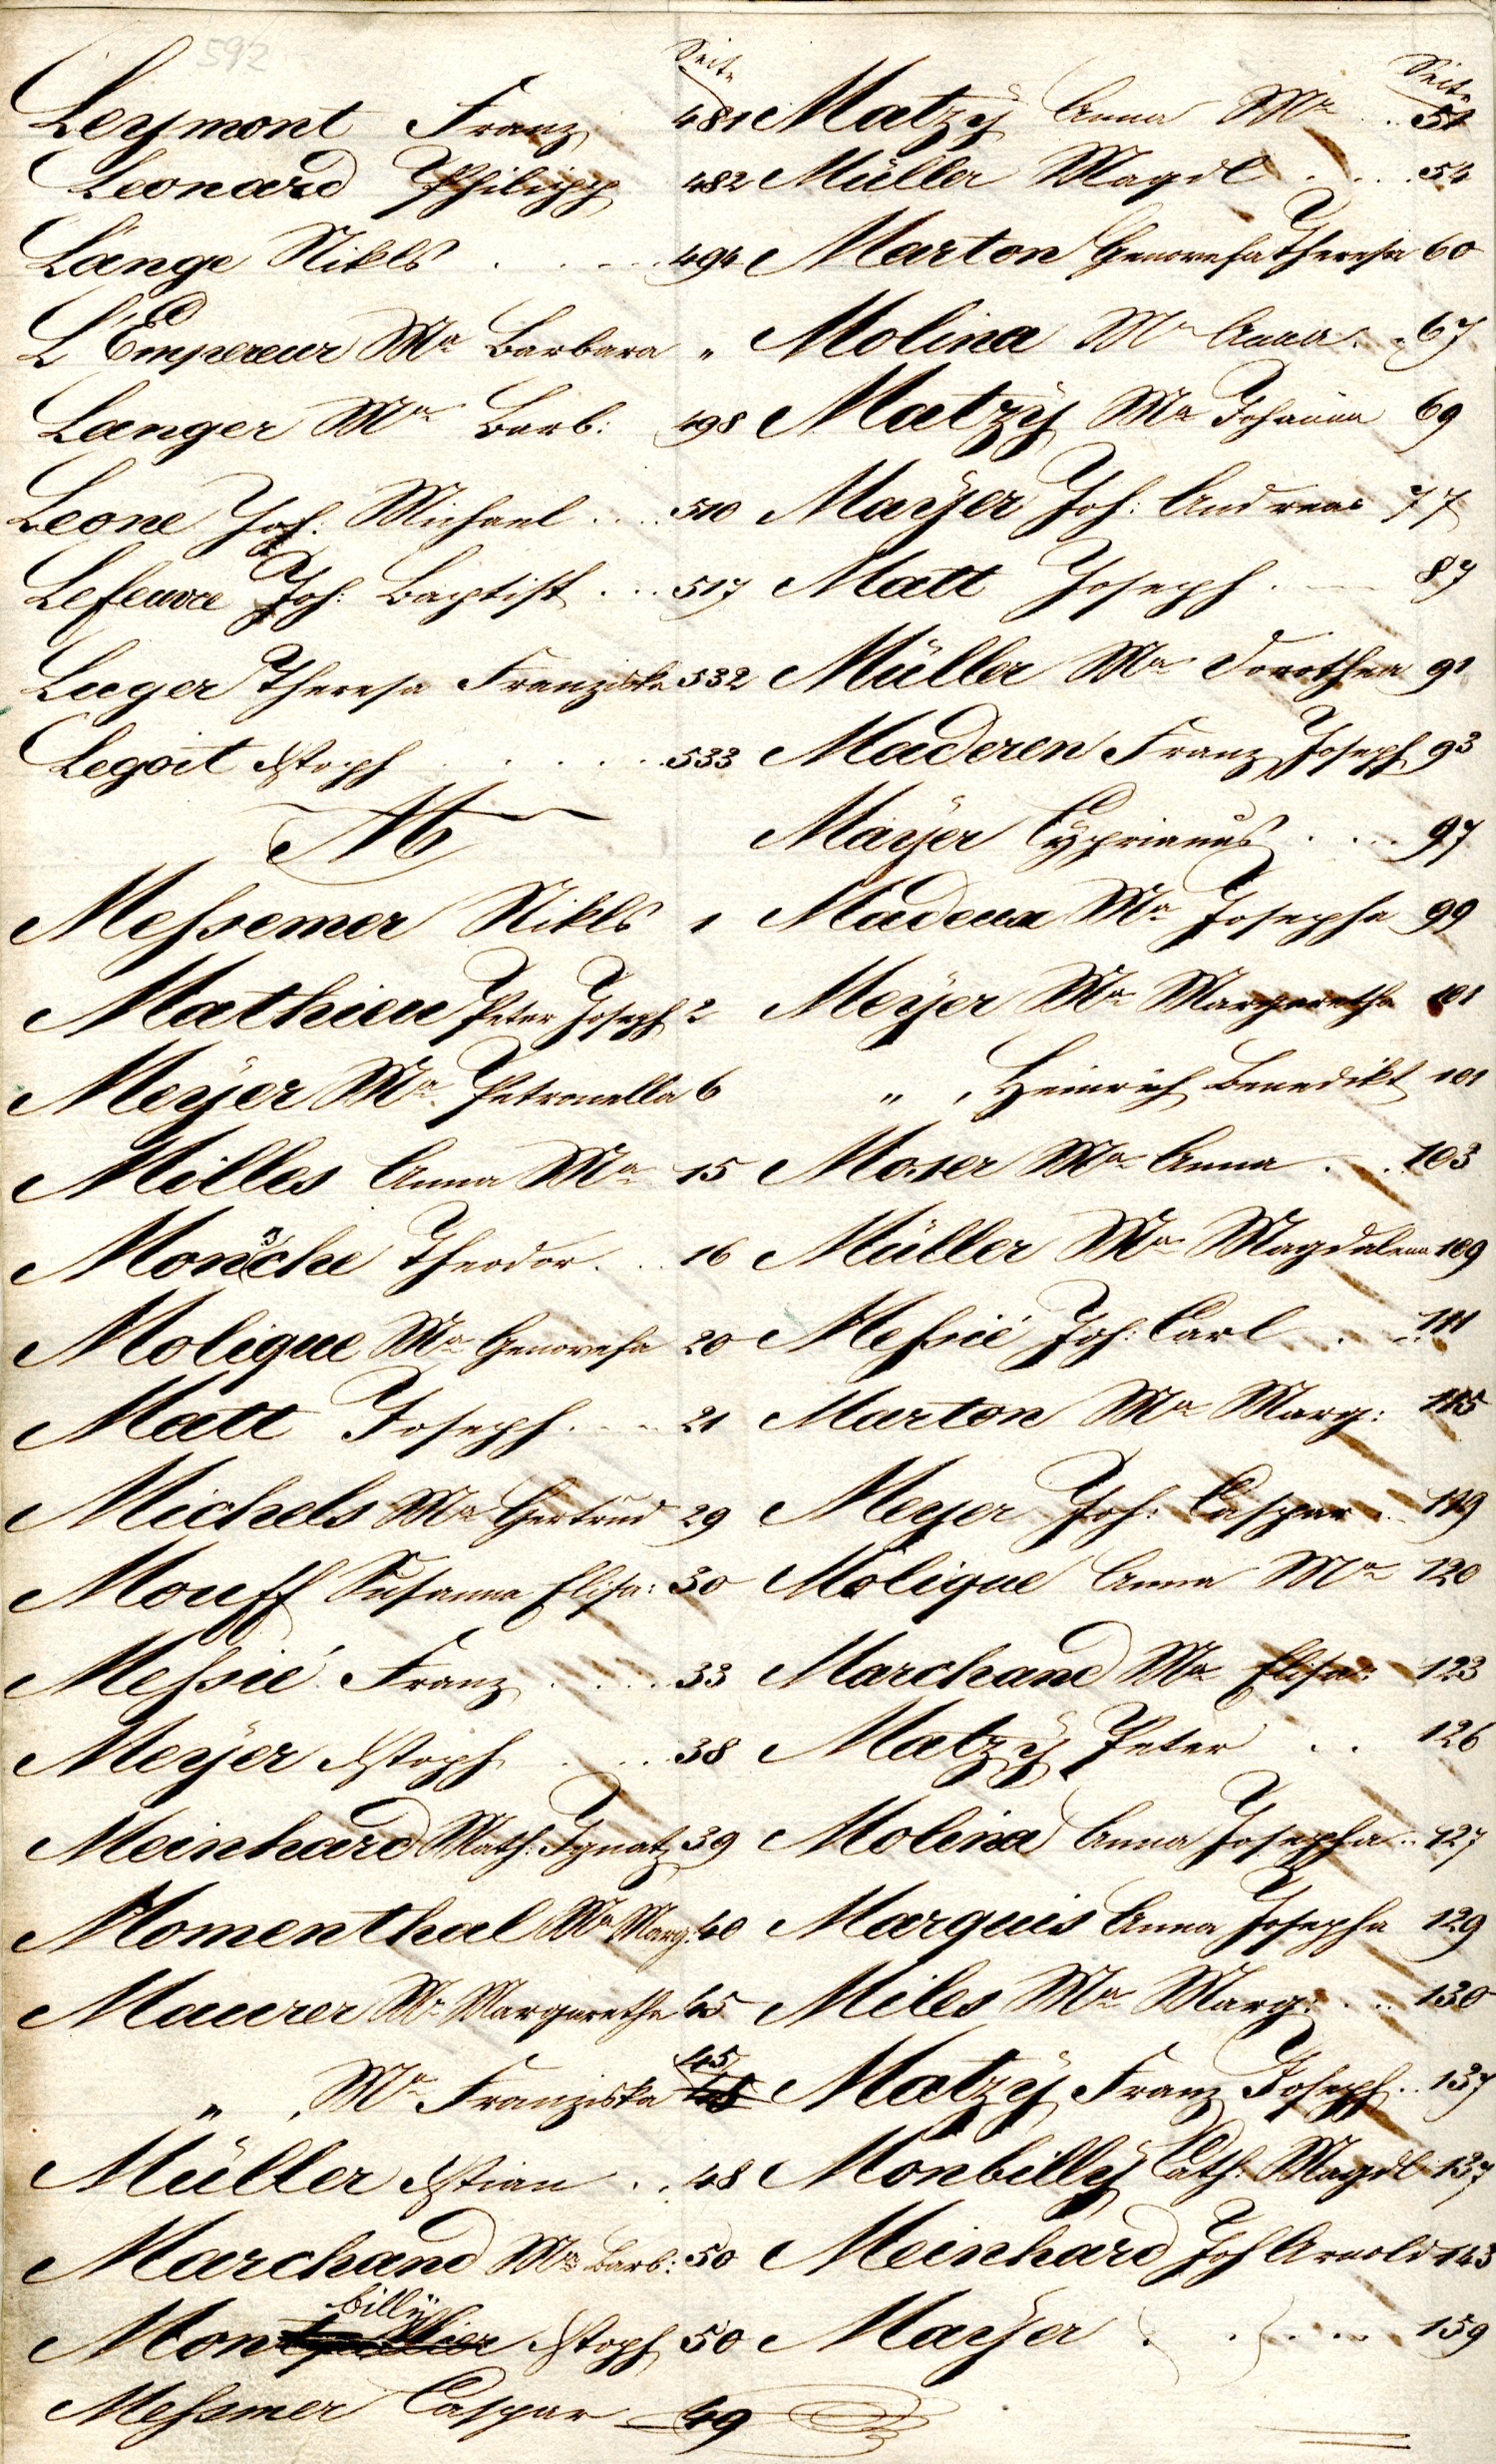 592
Seite
Leymont Franz 481
Leonard Philipp 482
Lange Nikls . . . . 494
L'Empereur Ma Barbara "
Langer Ma Barb: 498
Leone Joh: Michael . . . 510
Lefeuvre Joh: Baptist . . . 517
Luger Theresa Franziska 532
Legoit Xstoph . . . . . . 533
M
Messemer Nikls 1
Mathieu Peter Joseph 2
Meÿer Ma Petronella 6
Milles Anna Ma 15
Monsche Theodor . . . 16
Molique Ma Genovefa 20
Matt Joseph . . . 21
Michels Ma Gertrud 29
Mouff Susanna Elisa: 30
Messié Franz . . . . 33
Meÿer Xstoph . . . . 38
Meinhard Math: Ignatz 39
Momenthal Ma Marg: 40
Maurer Ma Margaretha 45
45
" , Ma Franziska 48
Müller Xstian . . 48
Marchand Ma Barb: 50
billÿ
Mon Xstoph 50
Messmer Caspar 49
Seite
Matzÿ Anna Ma . . 51
Müller Magdl . . . . 54
Marton Genovefa Theresa 60
Molina Ma Anna . . 67
Matzÿ Ma Johanna 69
Maÿer Joh: Andreas 77
Matt Joseph . 87
Müller Ma Dorothea 91
Maderen Franz Joseph 93
Maÿer Cyprianus . . . 97
Madeux Ma Josepha 99
Meÿer Ma Margaretha 101
" , Heinrich Benedikt 101
Moser Ma Anna . . . 103
Müller Ma Magdalena 109
Messié Joh: Carl . . . 111
Marton Ma Marg: 115
Meyer Joh: Caspar . . 119
Molique Anna Ma 120
Marchand Ma Elisa: 123
Matzÿ Peter . . 126
Molina Anna Josepha . . 127
Marquis Anna Josepha 129
Miles Ma Marg: . . . 130
Matzÿ Franz Joseph . . 137
Monbillÿ Cath: Magdl 137
Meinhard Joh Arnold 143
Maÿer . . . . . . 159